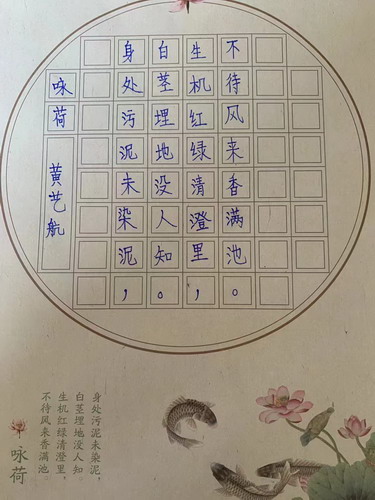 咏荷
黄艺航
身处污泥未染泥，
白茎埋地没人知。
生机红绿清澄里，
不待风来香满池。
身处污泥未染泥，
白茎埋地没人知
生机红绿清澄里，
不待风来香满池。
咏荷